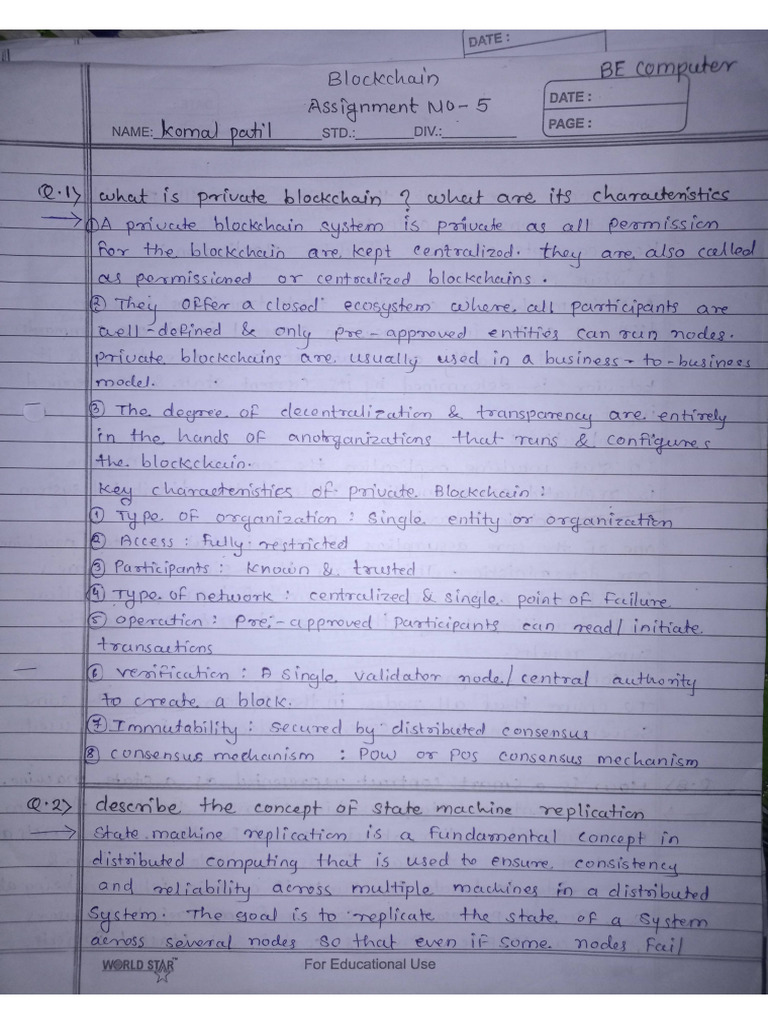 DATE :
Blockchain
BE Computer
Assignment No - 5
DATE :
NAME: Komal patil STD.: DIV.:
PAGE :
Q.1) what is private blockchain ? what are its characteristics
→ ① A private blockchain system is private as all permission
for the blockchain are kept centralized. they are also called
as permissioned or centralized blockchains.
② They offer a closed ecosystem where all participants are
well-defined & only pre-approved entities can run nodes.
private blockchains are usually used in a business-to-business
model.
③ The degree of decentralization & transparency are entirely
in the hands of an organizations that runs & configures
the blockchain.
Key characteristics of private Blockchain :
① Type of organization : Single entity or organization
② Access : Fully restricted
③ Participants : Known & trusted
④ Type of network : centralized & single point of failure
⑤ operation : Pre-approved participants can read/initiate
transactions
⑥ verification : A single validator node/central authority
to create a block.
⑦ Immutability : secured by distributed consensus
⑧ consensus mechanism : POW or POS consensus mechanism
Q.2) describe the concept of state machine replication
→ State machine replication is a fundamental concept in
distributed computing that is used to ensure consistency
and reliability across multiple machines in a distributed
System. The goal is to replicate the state of a system
across several nodes so that even if some nodes fail
WORLD STAR For Educational Use